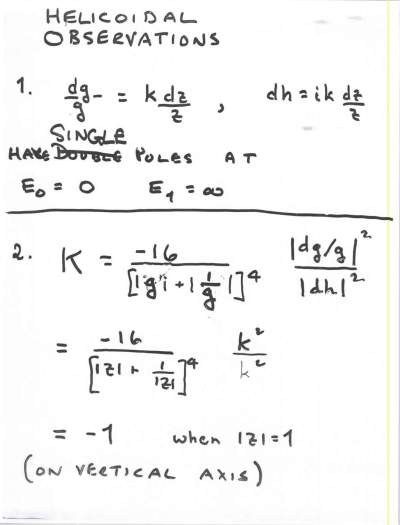 HELICOIDAL
OBSERVATIONS
1. dg/g = k dz/z , dh = ik dz/z
SINGLE
HAVE DOUBLE POLES AT
E₀ = 0 E₁ = ∞
2. K = -16/[|g| + |1/g|]⁴ |dg/g|²/|dh|²
= -16/[|z| + 1/|z|]⁴ k²/k²
= -1 when |z|=1
(ON VERTICAL AXIS)